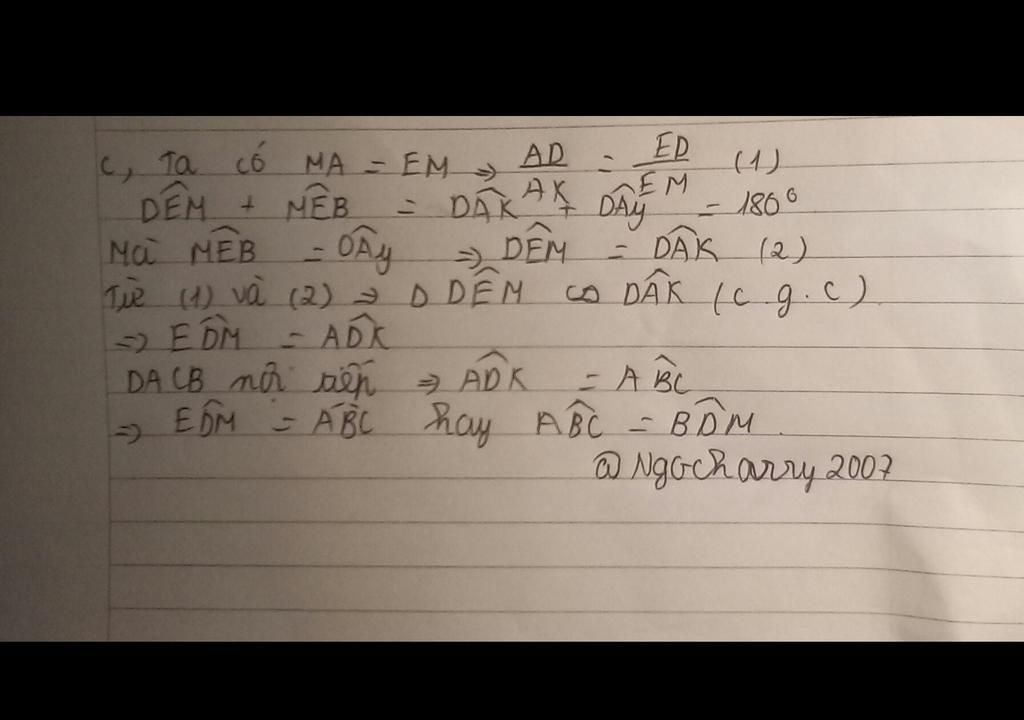 c, Ta có MA = EM => AD/AK = ED/EM (1)
DÊM + MÊB = DÂK + DÂy = 180°
Mà MÊB = OÂy => DÊM = DÂK (2)
Từ (1) và (2) => D DÊM ∽ DÂK (c.g.c)
=> ED̂M = AD̂K
DACB nội tiếp => AD̂K = AB̂C
=> ED̂M = AB̂C hay AB̂C = BD̂M.
@Ngocharry2007